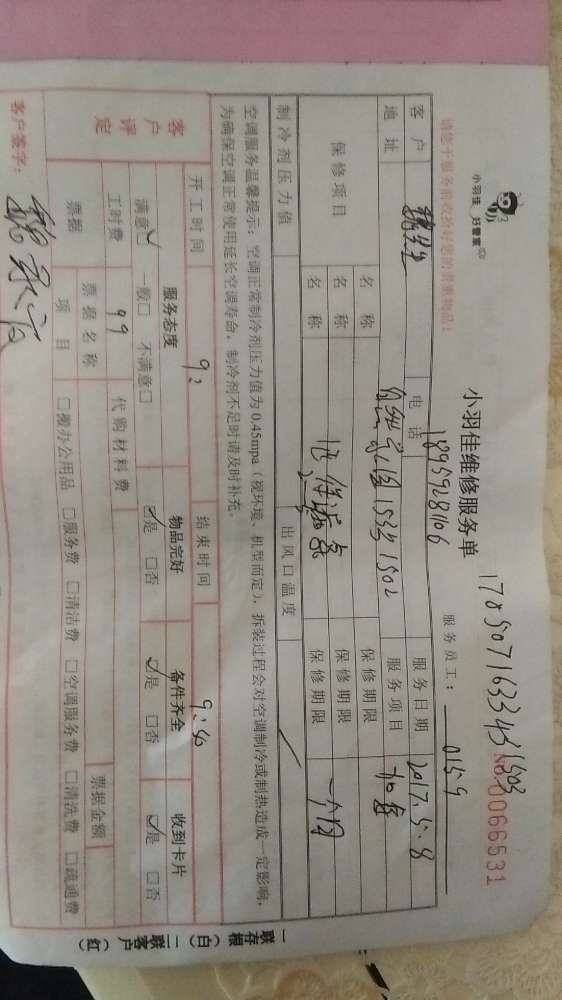 小羽佳 好管家
小羽佳维修服务单
1705071633431503
No.0066531
请您于服务前收拾好您的贵重物品!
服务员工: 0159
客户
电话 18959281106
服务日期 2017.5.8
地址
服务项目
保修项目
名称
保修期限
名称
保修期限
名称
保修期限 一个月
制冷剂压力值
出风口温度
空调服务温馨提示: 空调正常制冷剂压力值为0.45mpa (视环境、机型而定), 拆装过程会对空调制冷或制热造成一定影响,
为确保空调正常使用延长空调寿命, 制冷剂不足时请及时补充。
开工时间 9:
结束时间 9:40
客户评定
服务态度
物品完好
备件齐全
收到卡片
满意☑ 一般□ 不满意□
☑是 □否
☑是 □否
☑是 □否
工时费 99
代购材料费
票据
票据名称
票据金额
项目
□搬办公用品 □服务费 □清洁费 □空调服务费 □清洗费 □疏通费
客户签字:
一联存根(白) 二联客户(红)